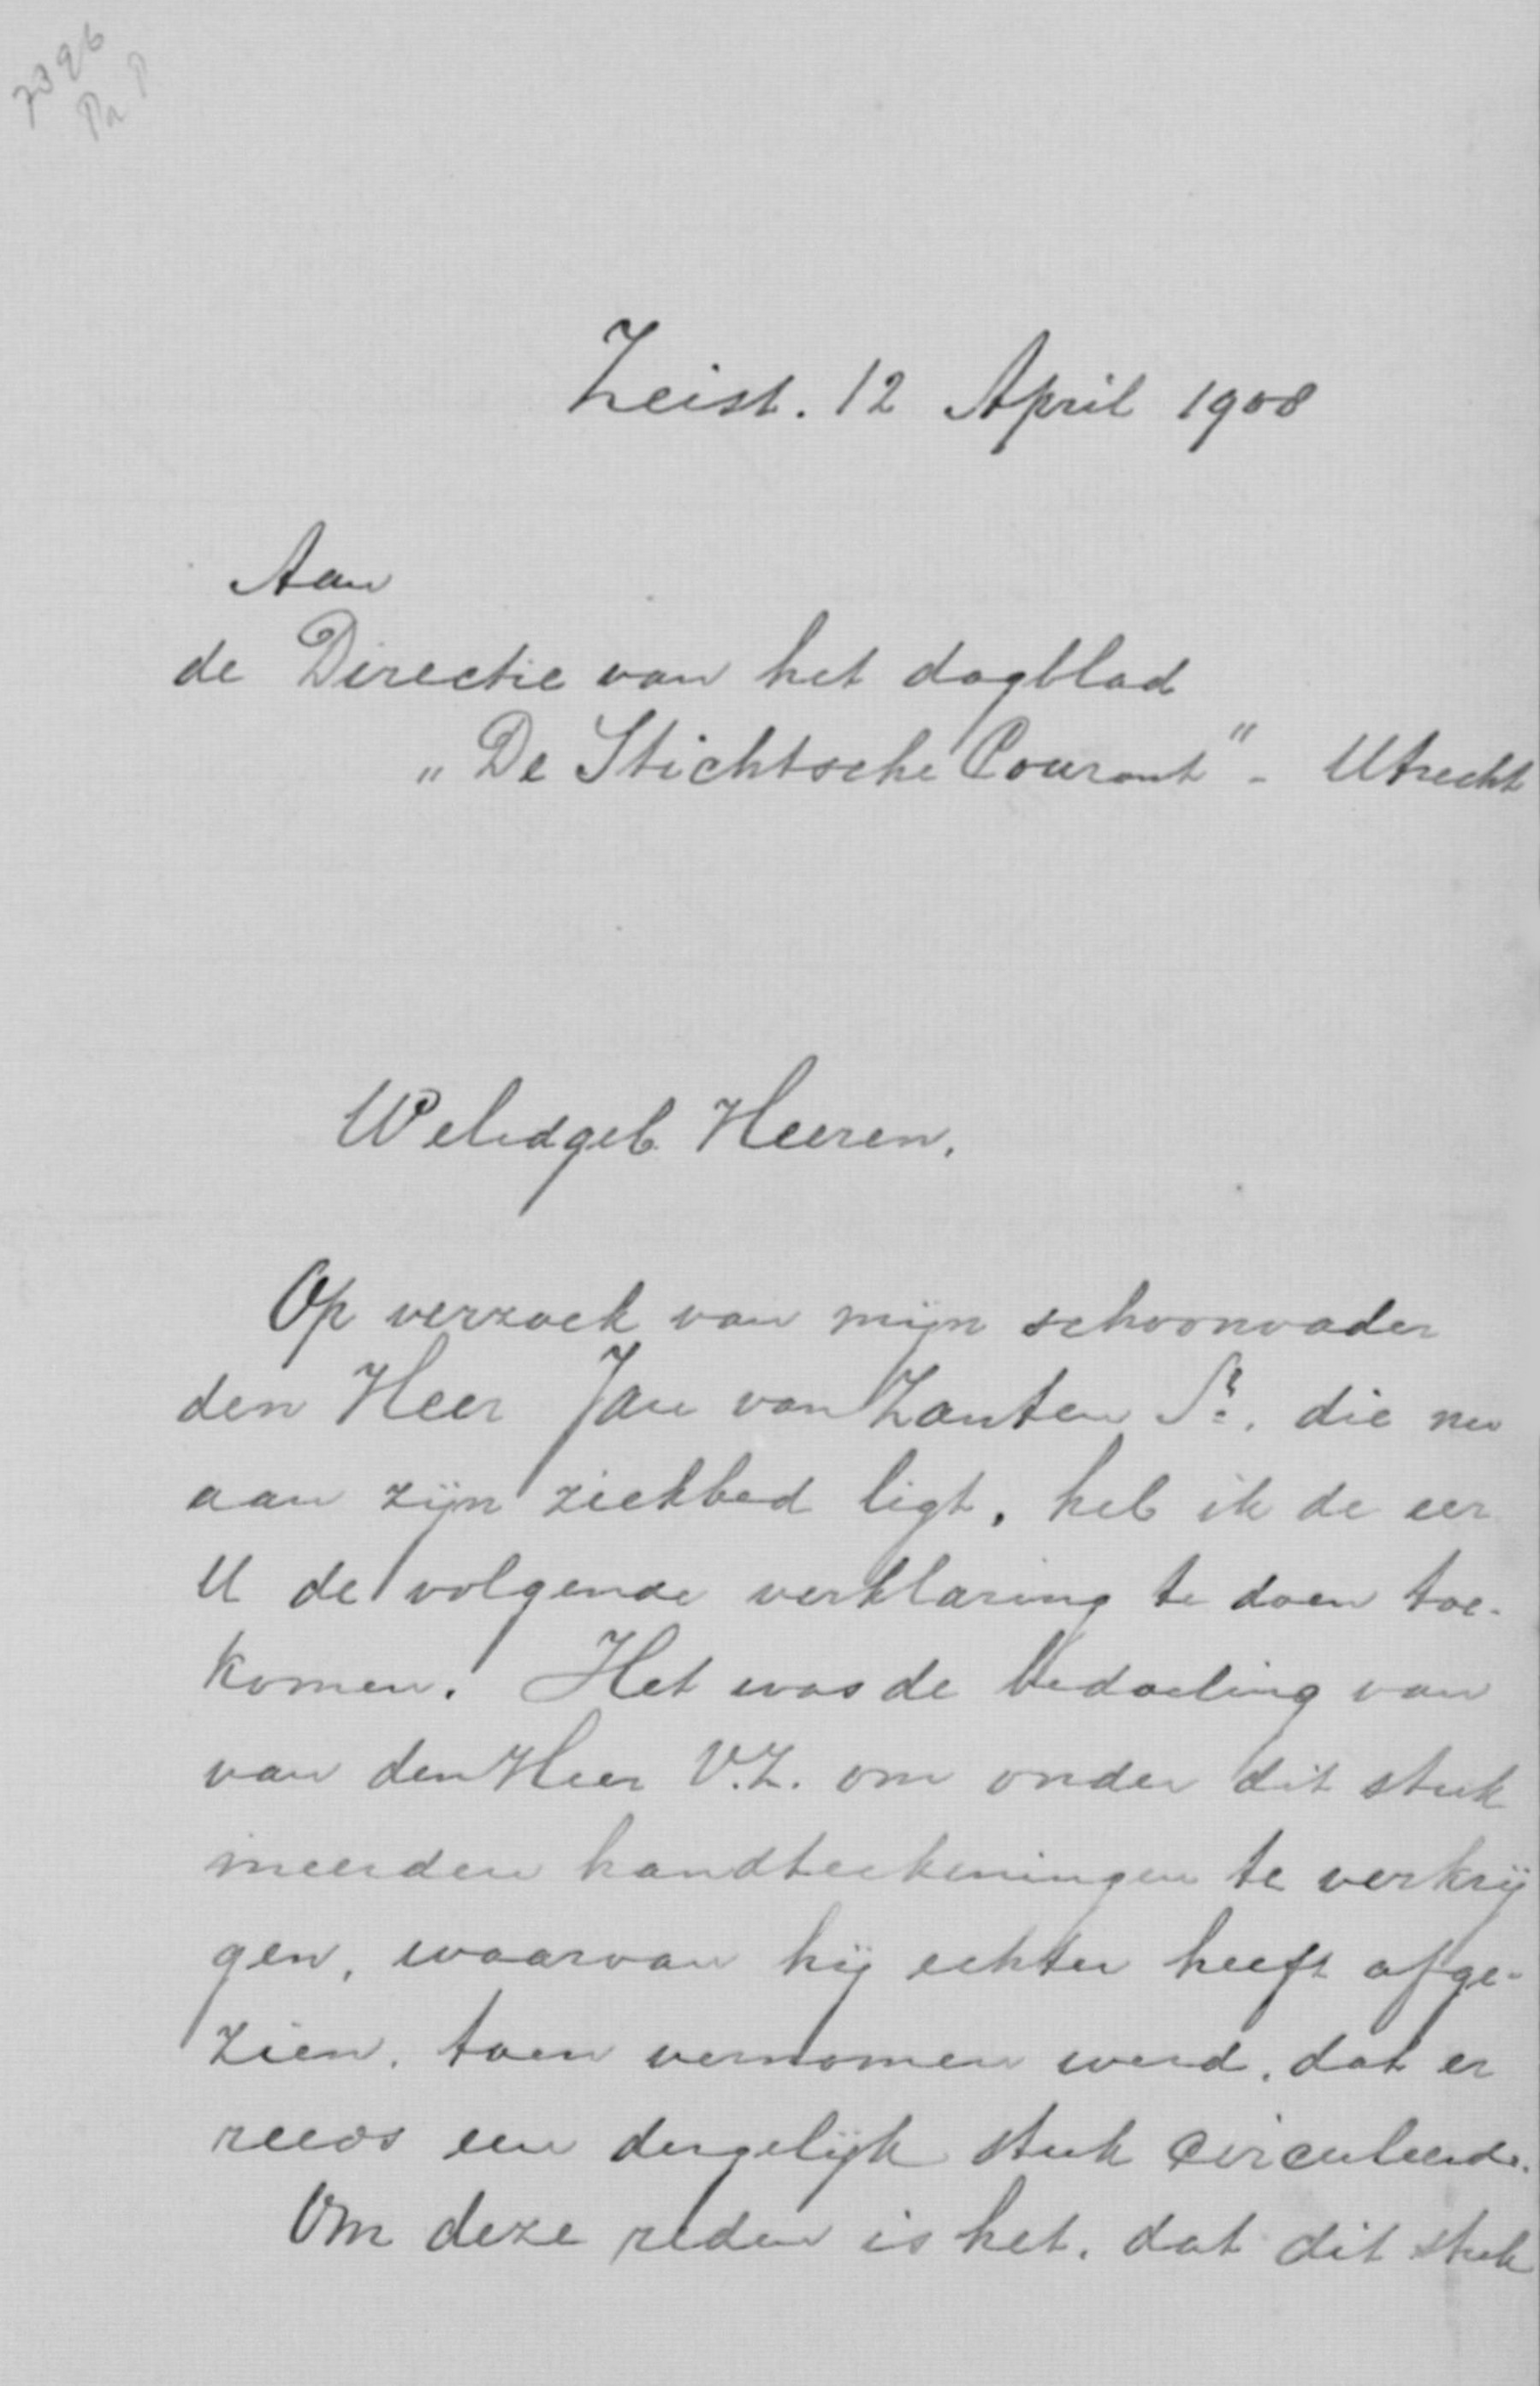 7396
Pa P
Zeist. 12 April 1908
Aan
de Directie van het dagblad
„De Stichtsche Courant" - Utrecht
Weledgeb. Heeren,
Op verzoek van mijn schoonvader
den Heer Jan van Zanten Sr. die nu
aan zijn ziekbed ligt, heb ik de eer
U de volgende verklaring te doen toe-
komen. Het was de bedoeling van
van den Heer V.Z. om onder dit stuk
meerdere handteekeningen te verkrij
gen, waarvan hij echter heeft afge-
zien, toen vernomen werd, dat er
reeds een dergelijk stuk circuleerde.
Om deze reden is het, dat dit stuk